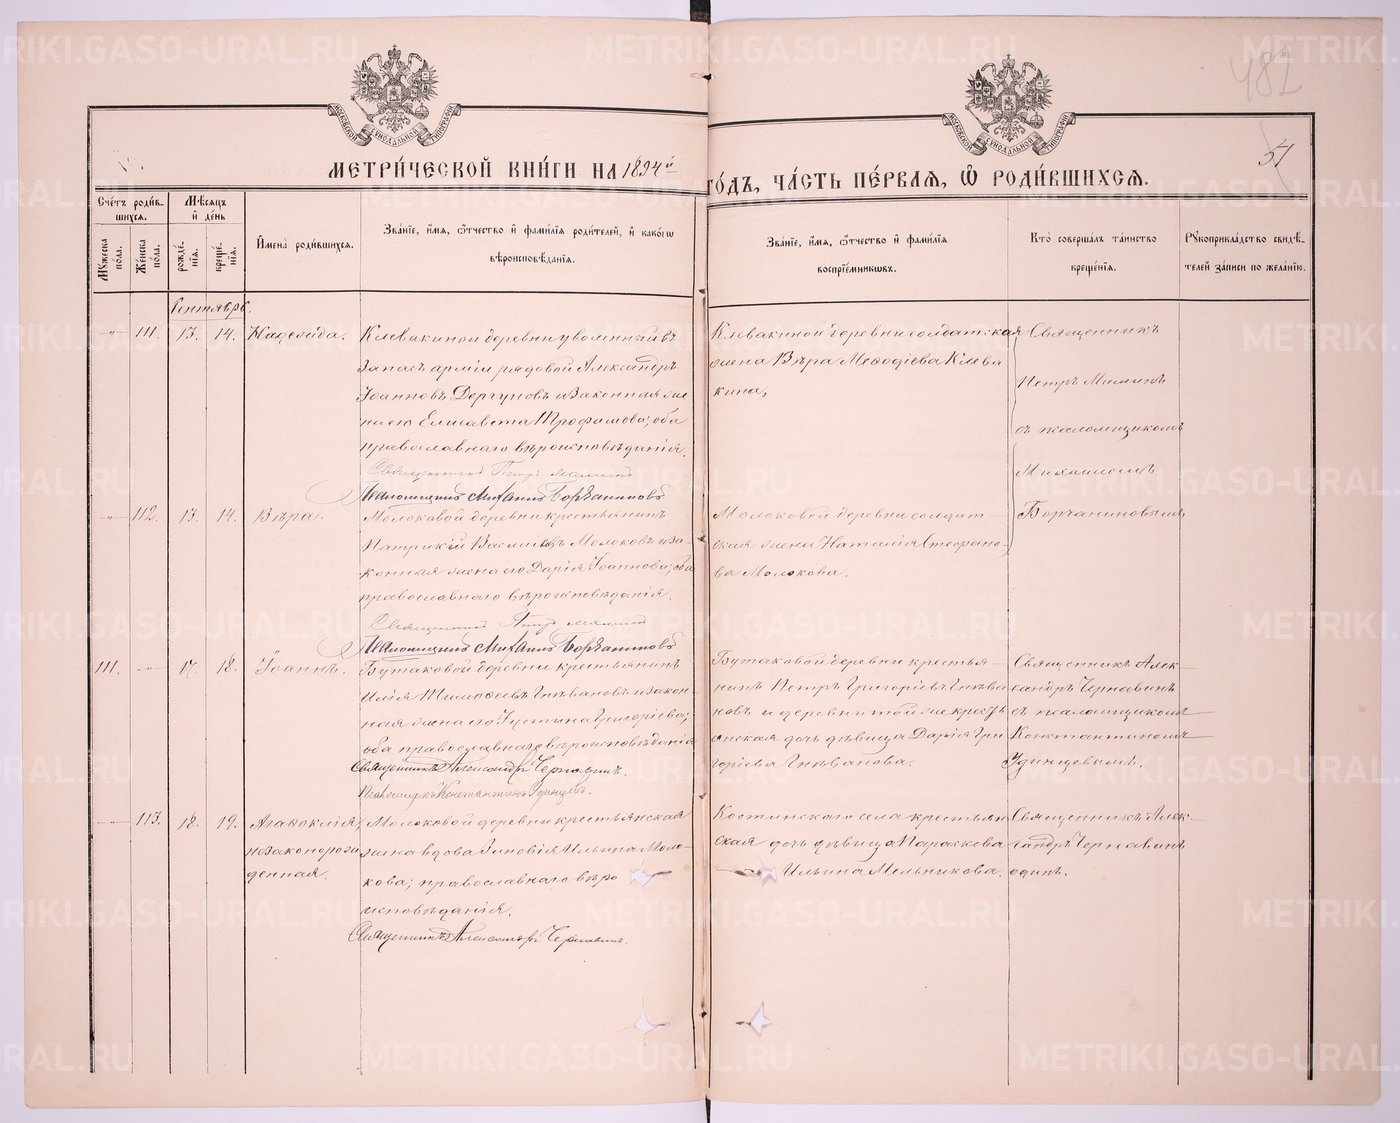 МЕТРИ́ЧЕСКОЙ КНИ́ГИ НА 1894й
ГО́ДЪ, ЧА́СТЬ ПЕ́РВАЯ, Ѿ РОДИ́ВШИХСЯ.
482
57
МОСКОВСКОЙ СУНОДАЛЬНОЙ ТИПОГРАФІИ
МОСКОВСКОЙ СУНОДАЛЬНОЙ ТИПОГРАФІИ
Сче́тъ роди́вшихся.
Му́жеска по́ла.
Же́нска по́ла.
Мѣ́сяцъ и҆ де́нь
рожде́нія.
креще́нія.
И҆мена̀ роди́вшихся.
Зва́ніе, и҆́мя, ѻ҆́тчество и҆ фами́лія роди́телей, и҆ како́гѡ
вѣроисповѣ́данія.
Зва́ніе, и҆́мя, ѻ҆́тчество и҆ фами́лія
воспріе́мниковъ.
Кто̀ соверша́лъ та́инство
креще́нія.
Рꙋкоприкла́дство свидѣ́телей за́писи по жела́нію.
Сентябрь.
-"- 111. 13. 14. Надежда.
Клевакиной деревни уволенный въ
запасъ арміи рядовой Александръ
Іоанновъ Дергуновъ и законная же-
на его Елисавета Трофимова; оба
православнаго вѣроисповѣданія.
Священникъ Петръ Маминъ
Псаломщикъ Михаилъ Борчаниновъ
Клевакиной деревни солдатская
жена Вѣра Меѳодіева Клева
кина,
Священникъ
Петръ Маминъ
съ псаломщикомъ
Михаиломъ
Борчаниновымъ
-"- 112. 13. 14. Вѣра.
Молоковой деревни крестьянинъ
Патрикій Васильевъ Молоковъ и за-
конная жена его Дарія Іоаннова; оба
православнаго вѣроисповѣданія.
Священникъ Петръ Маминъ
Псаломщикъ Михаилъ Борчаниновъ
Молоковой деревни солдат-
ская жена Наталія Стефано-
ва Молокова.
111. -"- 17. 18. Іоаннъ.
Бутаковой деревни крестьянинъ
Илія Тимоѳеевъ Гнѣвановъ и закон-
ная жена его Іустина Григоріева;
оба православнаго вѣроисповѣданія
Священникъ Александръ Чернавинъ.
Псаломщикъ Константинъ Удинцевъ.
Бутаковой деревни крестья-
нинъ Петръ Григоріевъ Гнѣва
новъ и деревни той же кресть
янская дочь дѣвица Дарія Гри
горіева Гнѣванова.
Священникъ Алек-
сандръ Чернавинъ
съ псаломщикомъ
Константиномъ
Удинцевымъ.
-"- 113. 18. 19. Агаѳоклія,
незаконорож
денная.
Молоковой деревни крестьянская
жена вдова Зиновія Ильина Моло-
кова; православнаго вѣро
исповѣданія.
Священникъ Александръ Чернавинъ.
Костинскаго села крестьян
ская дочь дѣвица Параскева
Ильина Мельникова.
Священникъ Алек-
сандръ Чернавинъ
одинъ.
METRIKI.GASO-URAL.RU